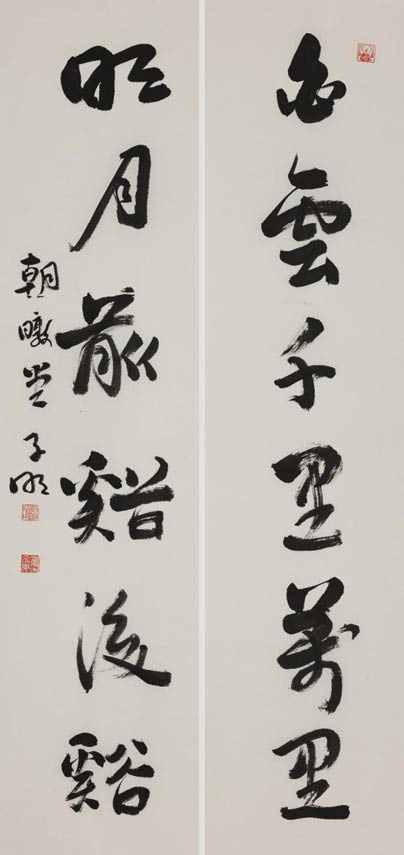 白雲千里萬里
明月前谿後谿
朝暾堂子明